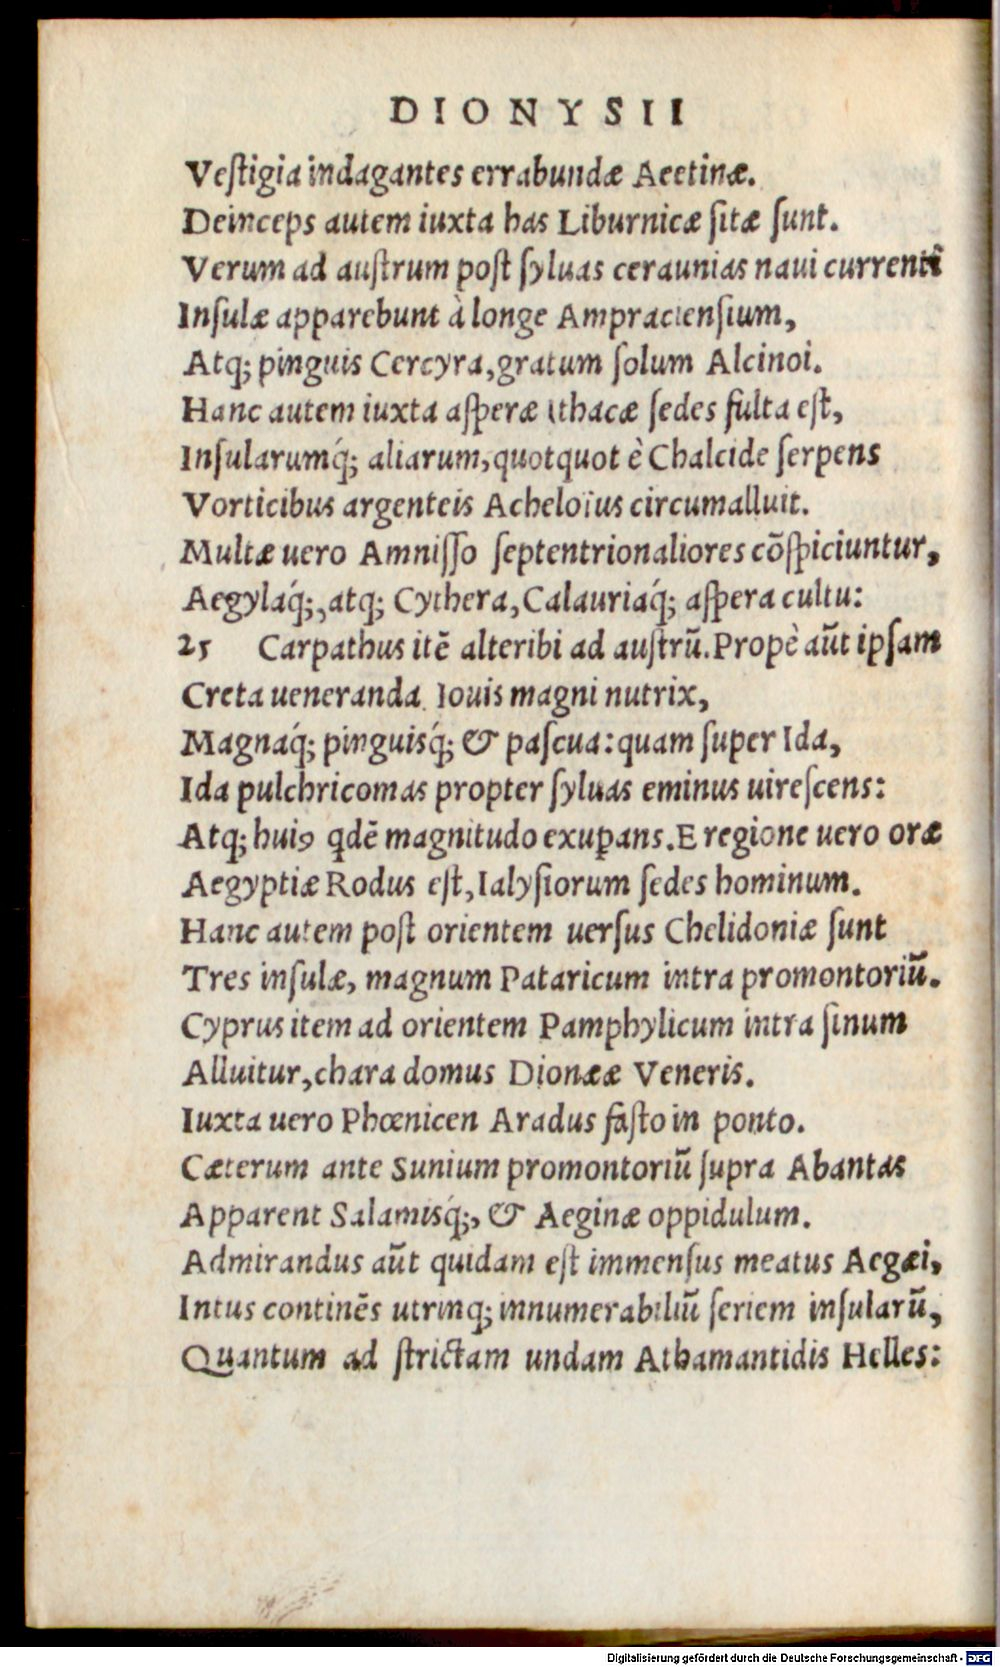 DIONYSII
Vestigia indagantes errabundæ Aeetinæ.
Deinceps autem iuxta has Liburnicæ sitæ sunt.
Verum ad austrum post syluas ceraunias naui currenti
Insulæ apparebunt à longe Ampraciensium,
Atq; pinguis Cercyra, gratum solum Alcinoi.
Hanc autem iuxta asperæ Ithacæ sedes fulta est,
Insularumq́; aliarum, quotquot è Chalcide serpens
Vorticibus argenteis Acheloïus circumalluit.
Multæ uero Amnisso septentrionaliores cõspiciuntur,
Aegylaq́;, atq; Cythera, Calauriaq́; aspera cultu:
25 Carpathus itẽ alteribi ad austrũ. Propè aũt ipsam
Creta ueneranda Iouis magni nutrix,
Magnaq́; pinguisq́; & pascua: quam super Ida,
Ida pulchricomas propter syluas eminus uirescens:
Atq; huiꝰ qdẽ magnitudo exuꝑans. E regione uero oræ
Aegyptiæ Rodus est, Ialysiorum sedes hominum.
Hanc autem post orientem uersus Chelidoniæ sunt
Tres insulæ, magnum Pataricum intra promontoriũ.
Cyprus item ad orientem Pamphylicum intra sinum
Alluitur, chara domus Dionææ Veneris.
Iuxta uero Phœnicen Aradus fasto in ponto.
Cæterum ante Sunium promontoriũ supra Abantas
Apparent Salamisq́;, & Aeginæ oppidulum.
Admirandus aũt quidam est immensus meatus Aegæi,
Intus continẽs utrinq; innumerabiliũ seriem insularũ,
Quantum ad strictam undam Athamantidis Helles:
Digitalisierung gefördert durch die Deutsche Forschungsgemeinschaft - DFG